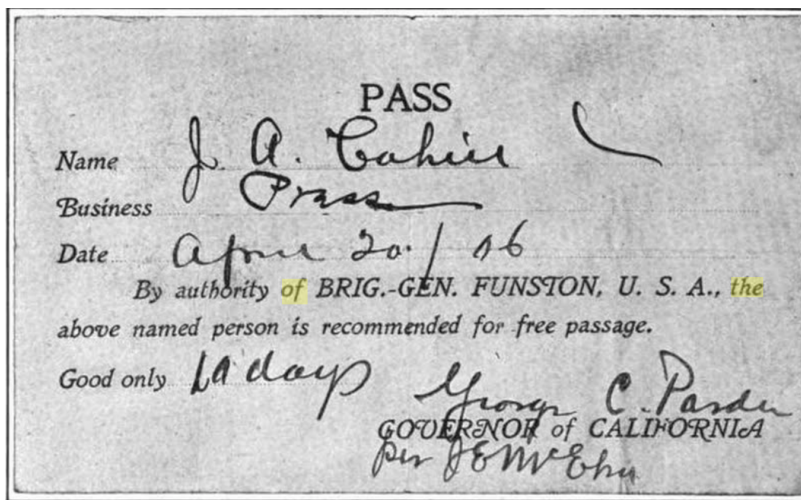 PASS
Name J. A. Cahill
Business Press
Date April 20 / 06
By authority of BRIG.-GEN. FUNSTON, U. S. A., the
above named person is recommended for free passage.
Good only 10 days
George C. Pardee
GOVERNOR of CALIFORNIA
per J E